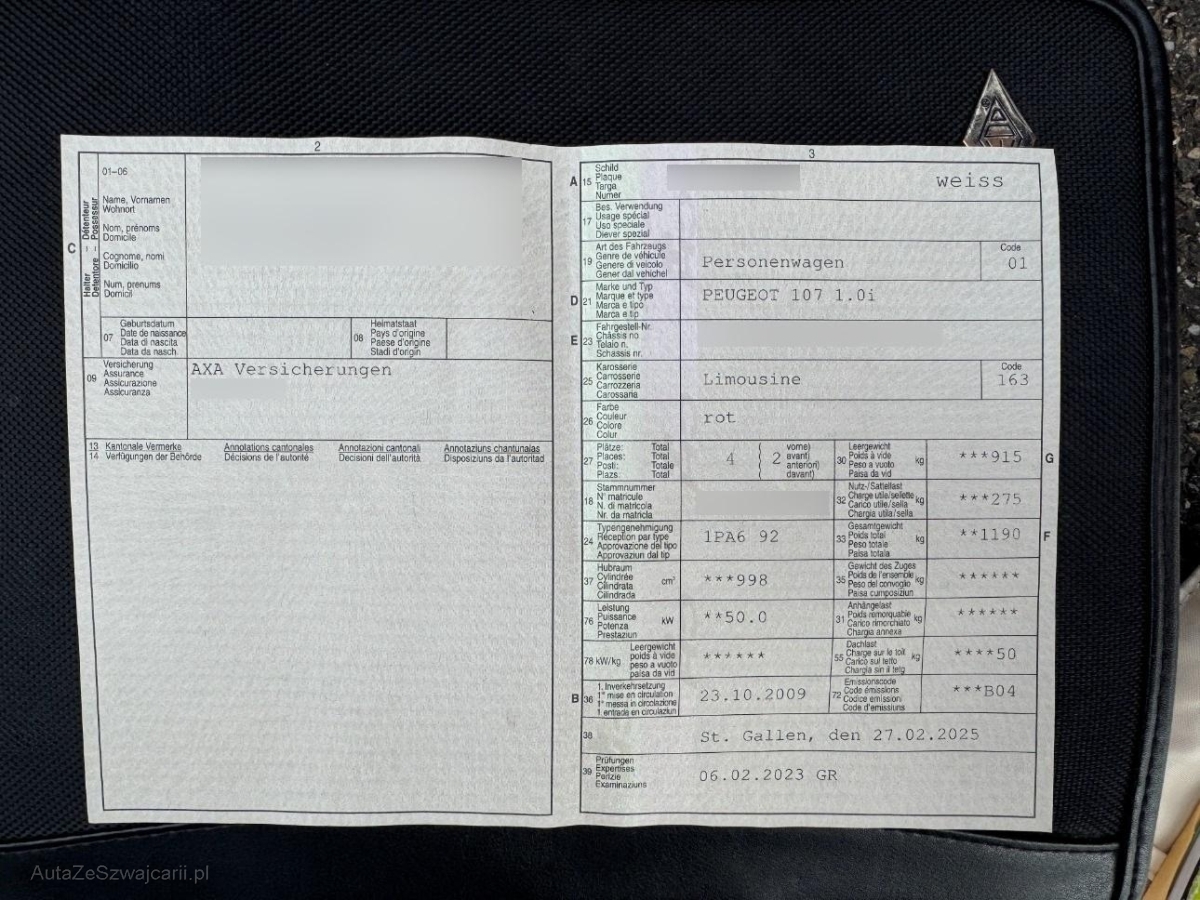 2
01–06
Name, Vornamen
Wohnort
Nom, prénoms
Domicile
Cognome, nomi
Domicilio
Num, prenums
Domicil
C
Halter – Détenteur
Detentore – Possessur
07
Geburtsdatum
Date de naissance
Data di nascita
Data da nasch.
08
Heimatstaat
Pays d'origine
Paese d'origine
Stadi d'origin
09
Versicherung
Assurance
Assicurazione
Assicuranza
AXA Versicherungen
13 Kantonale Vermerke Annotations cantonales Annotazioni cantonali Annotaziuns chantunalas
14 Verfügungen der Behörde Décisions de l'autorité Decisioni dell'autorità Disposiziuns da l'autoritad
3
A 15
Schild
Plaque
Targa
Numer
weiss
17
Bes. Verwendung
Usage spécial
Uso speciale
Diever spezial
19
Art des Fahrzeugs
Genre de véhicule
Genere di veicolo
Gener dal vehichel
Personenwagen
Code
01
D 21
Marke und Typ
Marque et type
Marca e tipo
Marca e tip
PEUGEOT 107 1.0i
E 23
Fahrgestell-Nr.
Châssis no
Telaio n.
Schassis nr.
25
Karosserie
Carrosserie
Carrozzeria
Carossaria
Limousine
Code
163
26
Farbe
Couleur
Colore
Colur
rot
27
Plätze: Total
Places: Total
Posti: Totale
Plazs: Total
4
( 2 vorne)
( avant)
( anteriori)
( davant)
30
Leergewicht
Poids à vide
Peso a vuoto
Paisa da vid
kg
***915
G
18
Stammnummer
N° matricule
N. di matricola
Nr. da matricla
32
Nutz-/Sattellast
Charge utile/sellette
Carico utile/sella
Chargia utila/sella
kg
***275
24
Typengenehmigung
Réception par type
Approvazione del tipo
Approvaziun dal tip
1PA6 92
33
Gesamtgewicht
Poids total
Peso totale
Paisa totala
kg
**1190
F
37
Hubraum
Cylindrée
Cilindrata
Cilindrada
cm³
***998
35
Gewicht des Zuges
Poids de l'ensemble
Peso del convoglio
Paisa cumposiziun
kg
******
76
Leistung
Puissance
Potenza
Prestaziun
kW
**50.0
31
Anhängelast
Poids remorquable
Carico rimorchiato
Chargia annexa
kg
******
78 kW/kg
Leergewicht
poids à vide
peso a vuoto
paisa da vid
******
55
Dachlast
Charge sur le toit
Carico sul tetto
Chargia sin il tetg
kg
****50
B 36
1. Inverkehrsetzung
1re mise en circulation
1a messa in circolazione
1. entrada en circulaziun
23.10.2009
72
Emissionscode
Code émissions
Codice emissioni
Code d'emissiuns
***B04
38
St. Gallen, den 27.02.2025
39
Prüfungen
Expertises
Perizie
Examinaziuns
06.02.2023 GR
AutaZeSzwajcarii.pl